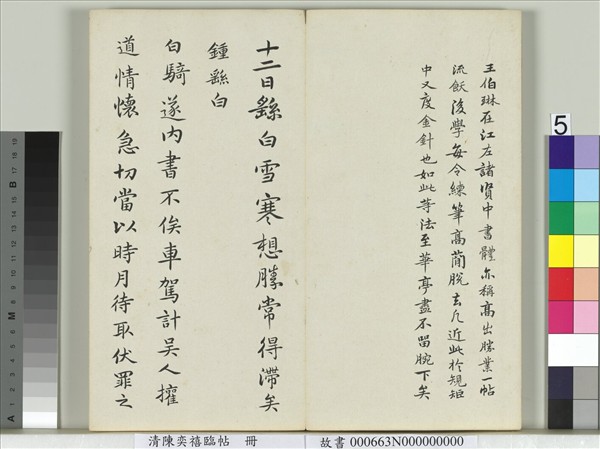 王伯琳在江左諸賢中書體亦稱高出勝業一帖
流飫後學每令練筆高蘭脫去凡近此於規矩
中又度金針也如此等法至華亭盡不留腕下矣
十二日繇白雪寒想勝常得滯矣
鍾繇白
白騎遂內書不俟車駕計吳人權
道情懷急切當以時月待取伏罪之
清陳奕禧臨帖 冊
故書 000663N000000000
5
A 1 2 3 4 5 6 M 8 9 10 11 12 13 14 15 B 17 18 19